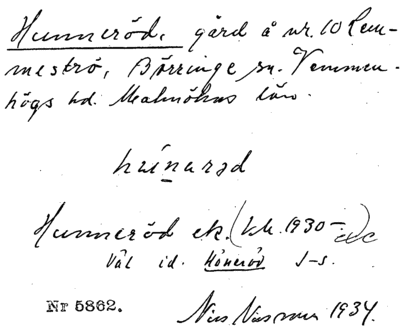 Hunneröd, gård å nr. 10 Lem-
meströ, Börringe sn. Vemmen-
högs hd. Malmöhus län.
Hunneröd ek. (kk. 1930-
Väl id. Höneröd J-s.
Nr 5862.
Nils 1934.